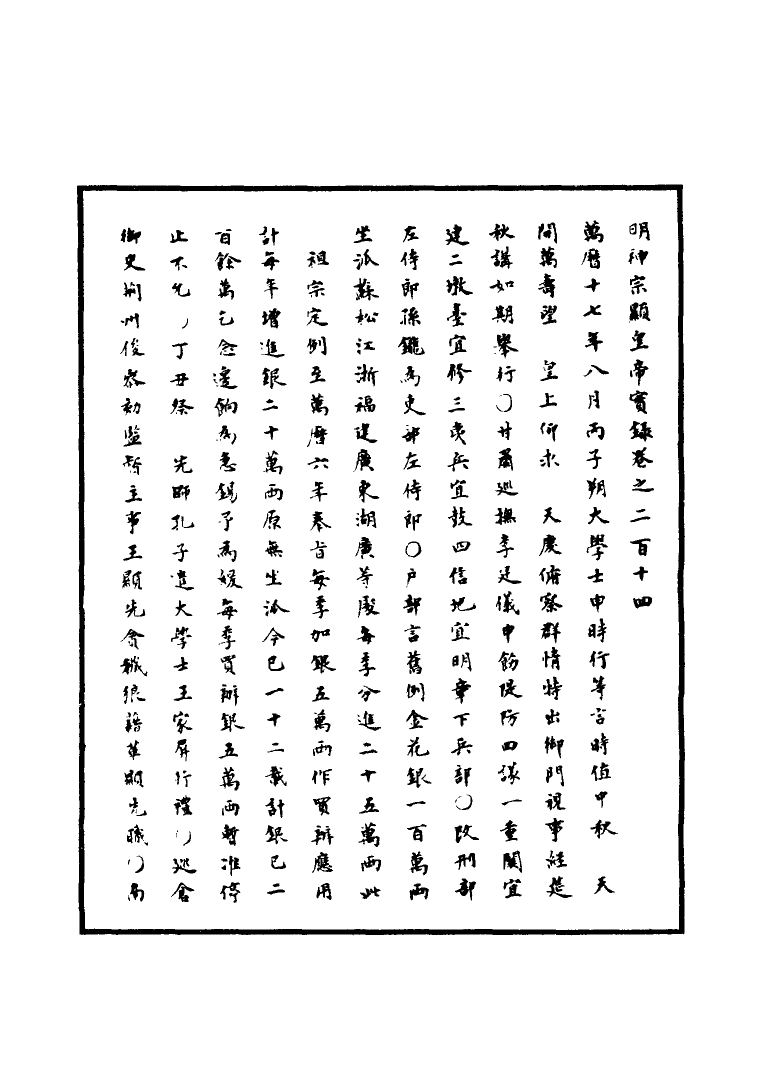 明神宗顯皇帝實錄卷之二百十四
萬曆十七年八月丙子朔大學士申時行等言時值中秋 天
開萬壽望 皇上仰承 天慶俯察群情特出御門視事經筵
秋講如期舉行○甘肅巡撫李廷儀申飭隄防四議一重關宜
建二墩臺宜修三夷兵宜鼓四信地宜明章下兵部○改刑部
左侍郎孫鑨為吏部左侍郎○戶部言舊例金花銀一百萬兩
坐派蘇松江浙福建廣東湖廣等處每季分進二十五萬兩此
祖宗定例至萬曆六年奉旨每季加銀五萬兩作買辦應用
計每年增進銀二十萬兩原無坐派今已一十二載計銀已二
百餘萬乞念邊餉為急錫予為緩每季買辦銀五萬兩暫准停
止不允○丁丑祭 先師孔子遣大學士王家屏行禮○巡倉
御史荊州俊參初監督主事王顯先貪穢狼藉革顯先職○烏